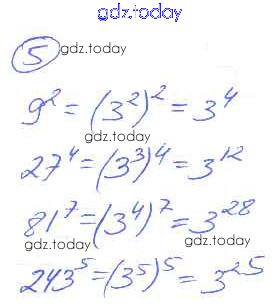 gdz.today
5 gdz.today
9² = (3²)² = 3⁴
gdz.today
27⁴ = (3³)⁴ = 3¹²
81⁷ = (3⁴)⁷ = 3²⁸
gdz.today
243⁵ = (3⁵)⁵ = 3²⁵